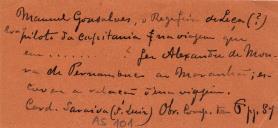 Manuel Gonsalves, o Regefeiro de Leca (?)
copiloto da Capitania na viagem que
em ........ fez Alexandre de Mou-
ra de Pernambuco ao Maranhão; es-
creveu a relação da viagem.
Card. Saraiva (S. Luiz) Obr. Comp. tom 6 pp. 87
AS 101